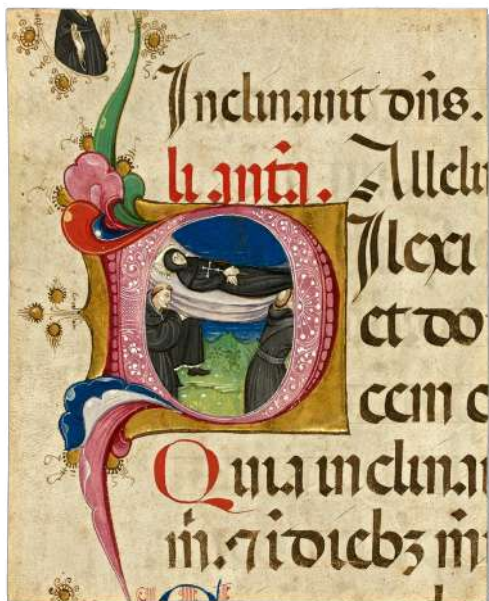 Inclinauit dn̄s.
li. antā. Allelu
DIlexi
et do
cem
Quia inclina
m̄. ⁊ i diebz m̄